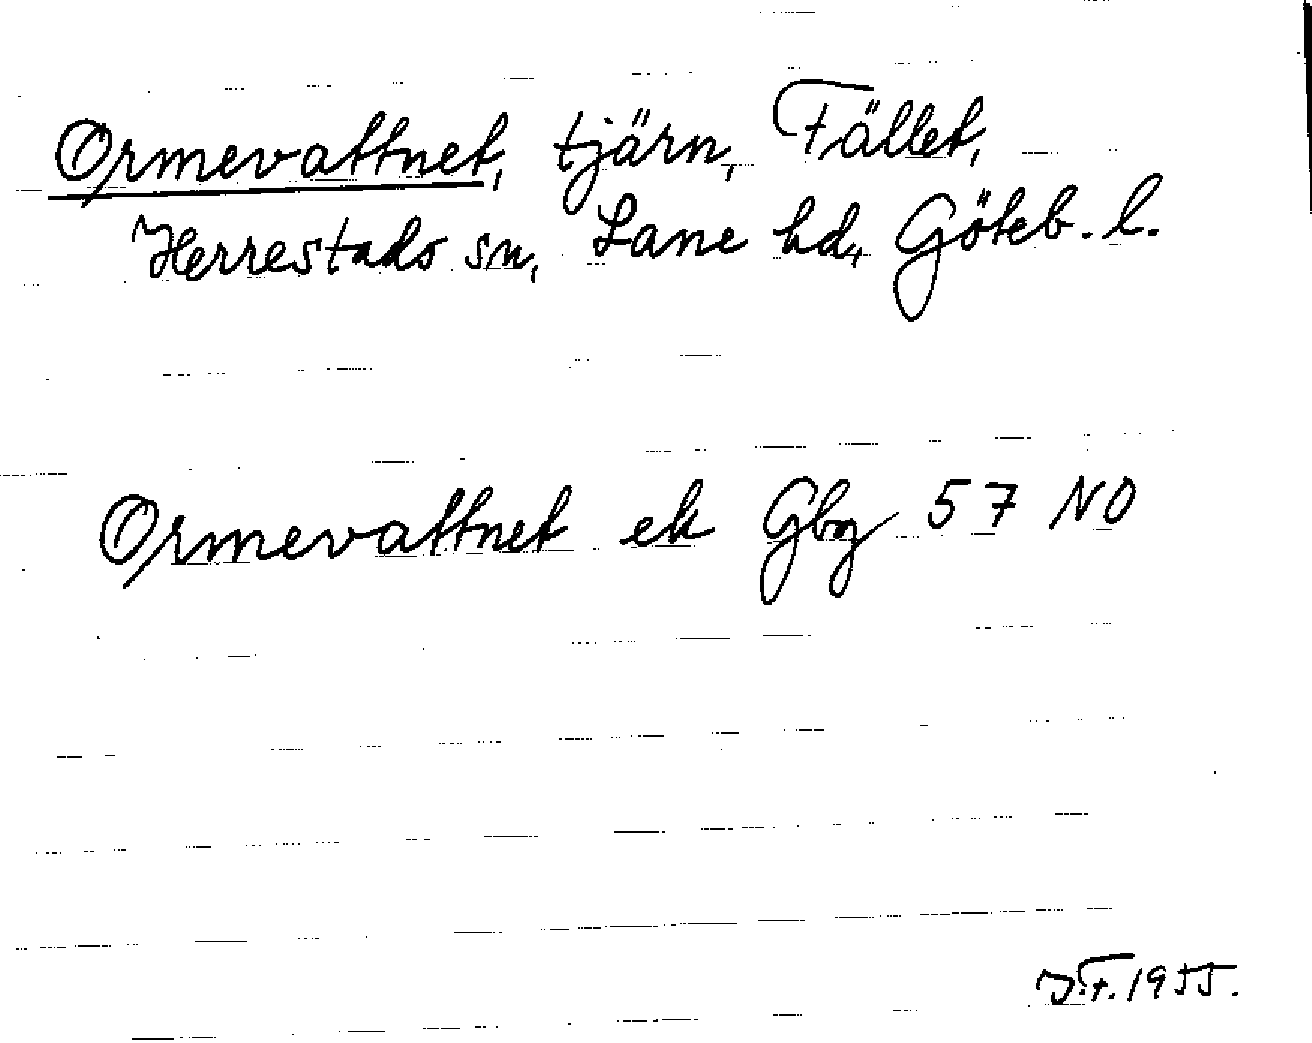 Ormevattnet, tjärn, Fället,
Herrestads sn, Lane hd, Göteb. l.
Ormevattnet ek Gbg 57 NO
J.F. 1955.